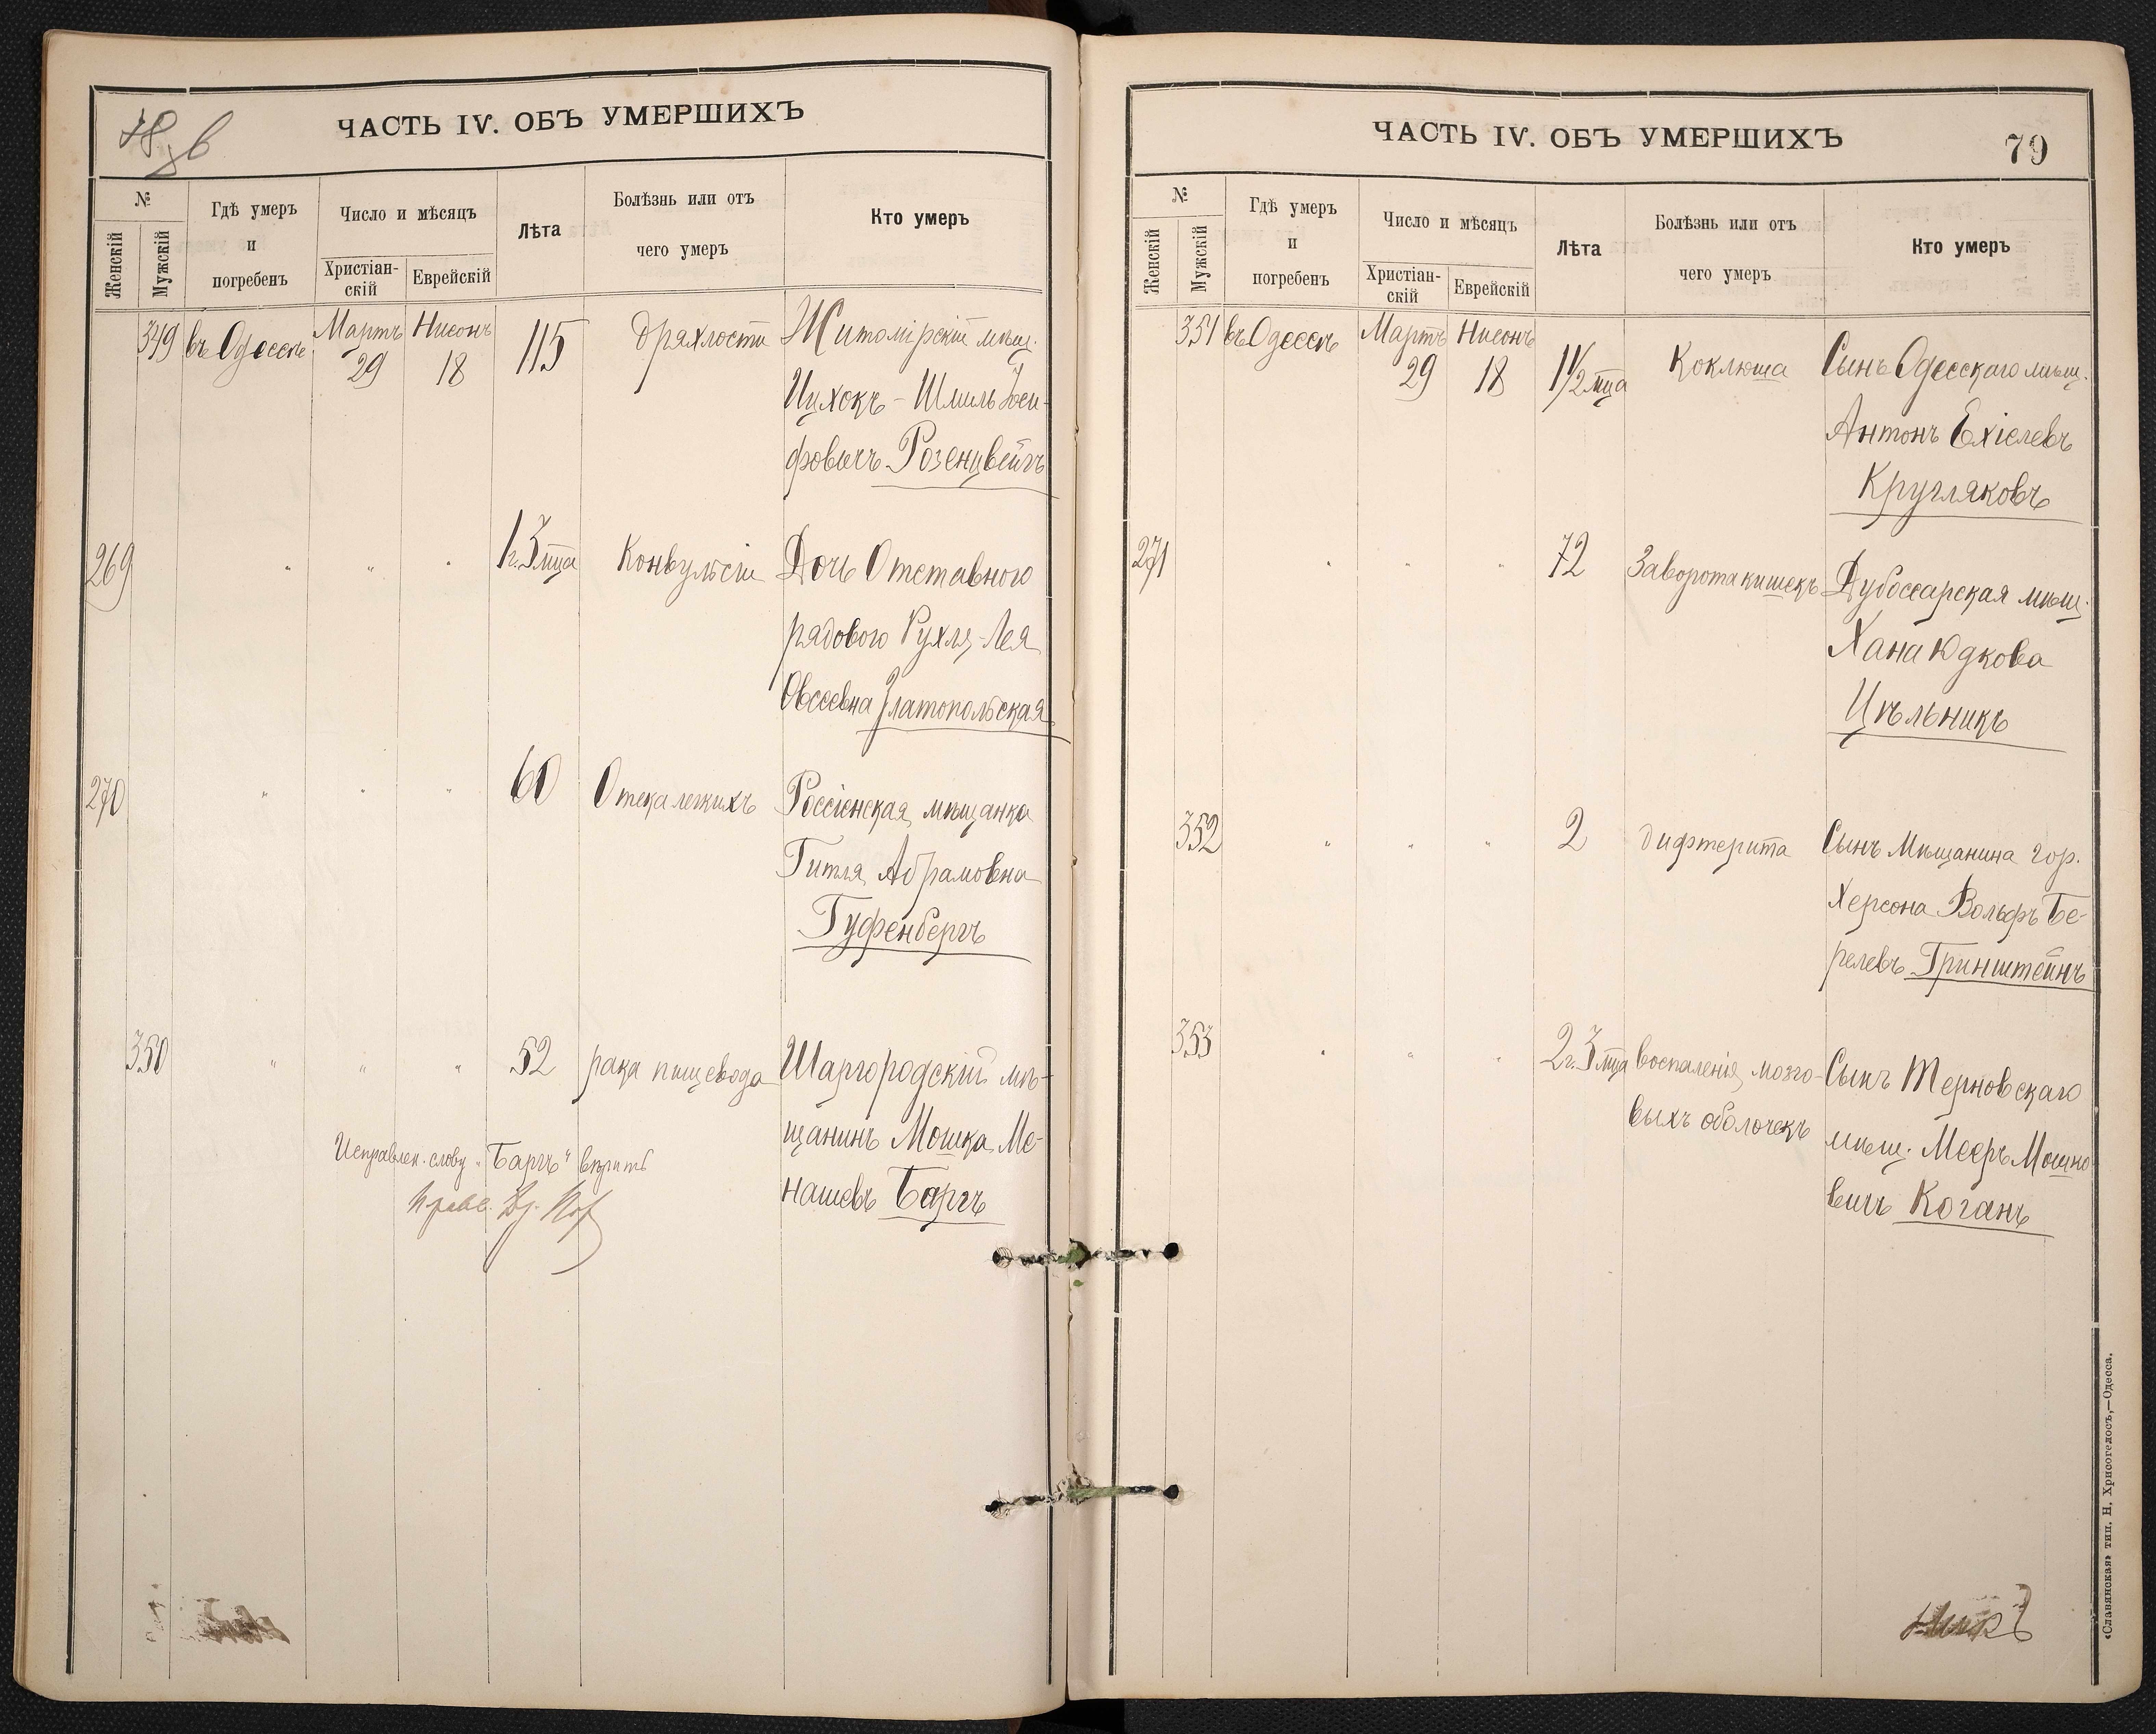 78
ЧАСТЬ IV. ОБЪ УМЕРШИХЪ
№
Женскій
Мужскій
Гдѣ умеръ
и
погребенъ
Число и мѣсяцъ
Христіан-
скій
Еврейскій
Лѣта
Болѣзнь или отъ
чего умеръ
Кто умеръ
349 въ Одессѣ Мартъ 29 Нисонъ 18 115 дряхлости Житомірскій мѣщ.
Ицхокъ-Шмиль Іоси-
фовичъ Розенцвейгъ
269 " " " 1 г. 3 мца Конвульсіи Дочь Отставного
рядового Рухля-Лея
Овсеевна Златопольская
270 " " " 60 Отека легкихъ Россіенская мѣщанка
Гитля Абрамовна
Гуфенбергъ
350 " " " 52 рака пищевода Шаргородскій мѣ-
щанинъ Мошка Ме-
нашевъ Баргъ
Исправлен. слову „Баргъ" вѣрить
ЧАСТЬ IV. ОБЪ УМЕРШИХЪ
79
№
Женскій
Мужскій
Гдѣ умеръ
и
погребенъ
Число и мѣсяцъ
Христіан-
скій
Еврейскій
Лѣта
Болѣзнь или отъ
чего умеръ
Кто умеръ
351 въ Одессѣ Мартъ 29 Нисонъ 18 1½ мца Коклюша Сынъ Одесскаго мѣщ.
Антонъ Ехіелевъ
Кругляковъ
271 " " " 72 Заворота кишекъ Дубоссарская мѣщ.
Хана Юдкова
Цѣльникъ
352 " " " 2 дифтерита Сынъ Мѣщанина гор.
Херсона Вольфъ Бе-
релевъ Гринштейнъ
353 " " " 2 г. 3 мца воспаленія мозго- Сынъ Терновскаго
выхъ оболочекъ мѣщ. Мееръ Мошко-
вичъ Коганъ
«Славянская» тип. Н. Хрисогелосъ,—Одесса.